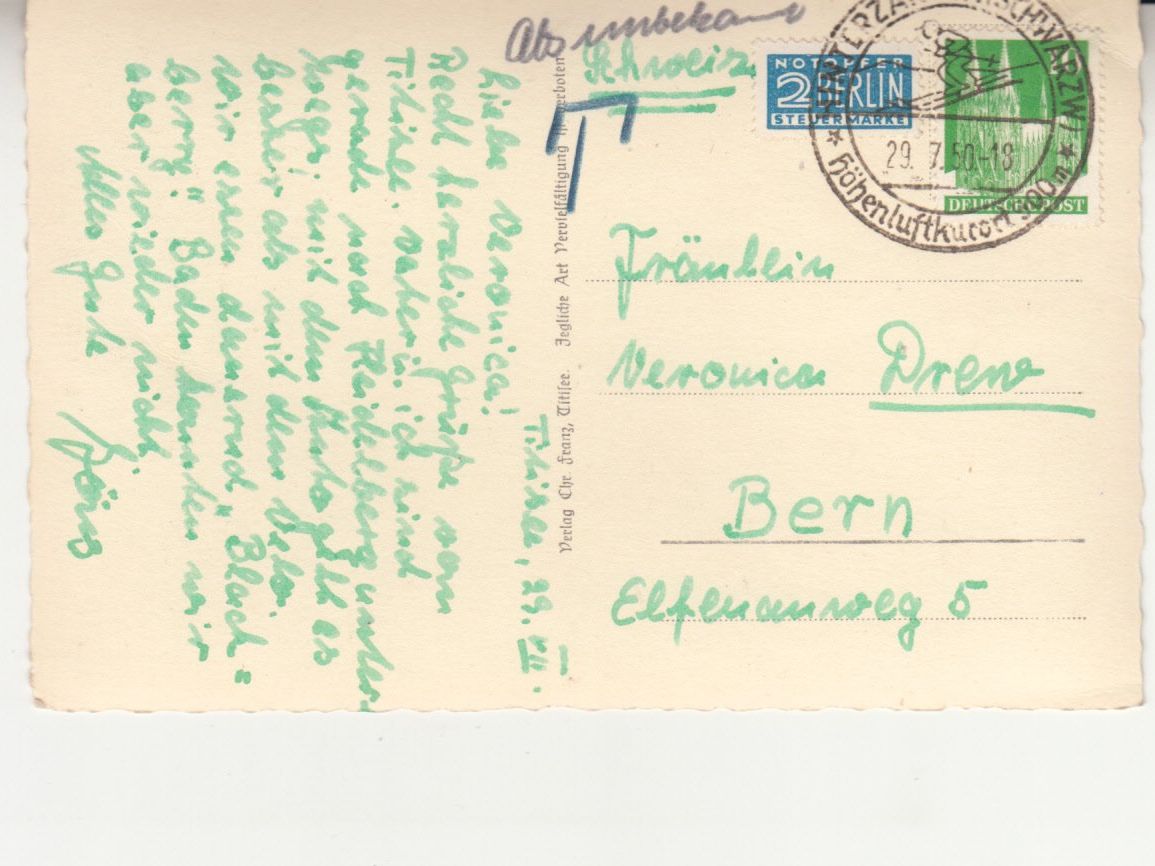 Abs unbekannt
Schweiz
T
NOTOPFER
2 BERLIN
STEUERMARKE
HINTERZARTEN (SCHWARZW)
29. 7. 50-18
Höhenluftkurort 900 m
DEUTSCHE POST
Fräulein
Veronica Drew
Bern
Elfenauweg 5
Verlag Chr. Franz, Titisee. Jegliche Art Vervielfältigung verboten
Titisee, 29. VII.
Liebe Veronica!
Recht herzliche Grüße vom
Titisee. Vater u. ich sind
gerade nach Heidelberg unter-
wegs mit dem Auto geht es
besser als mit dem Velo.
Wir essen dauernd "Black-
berry". Baden konnten wir
aber wieder nicht.
Alles Gute
Jörg